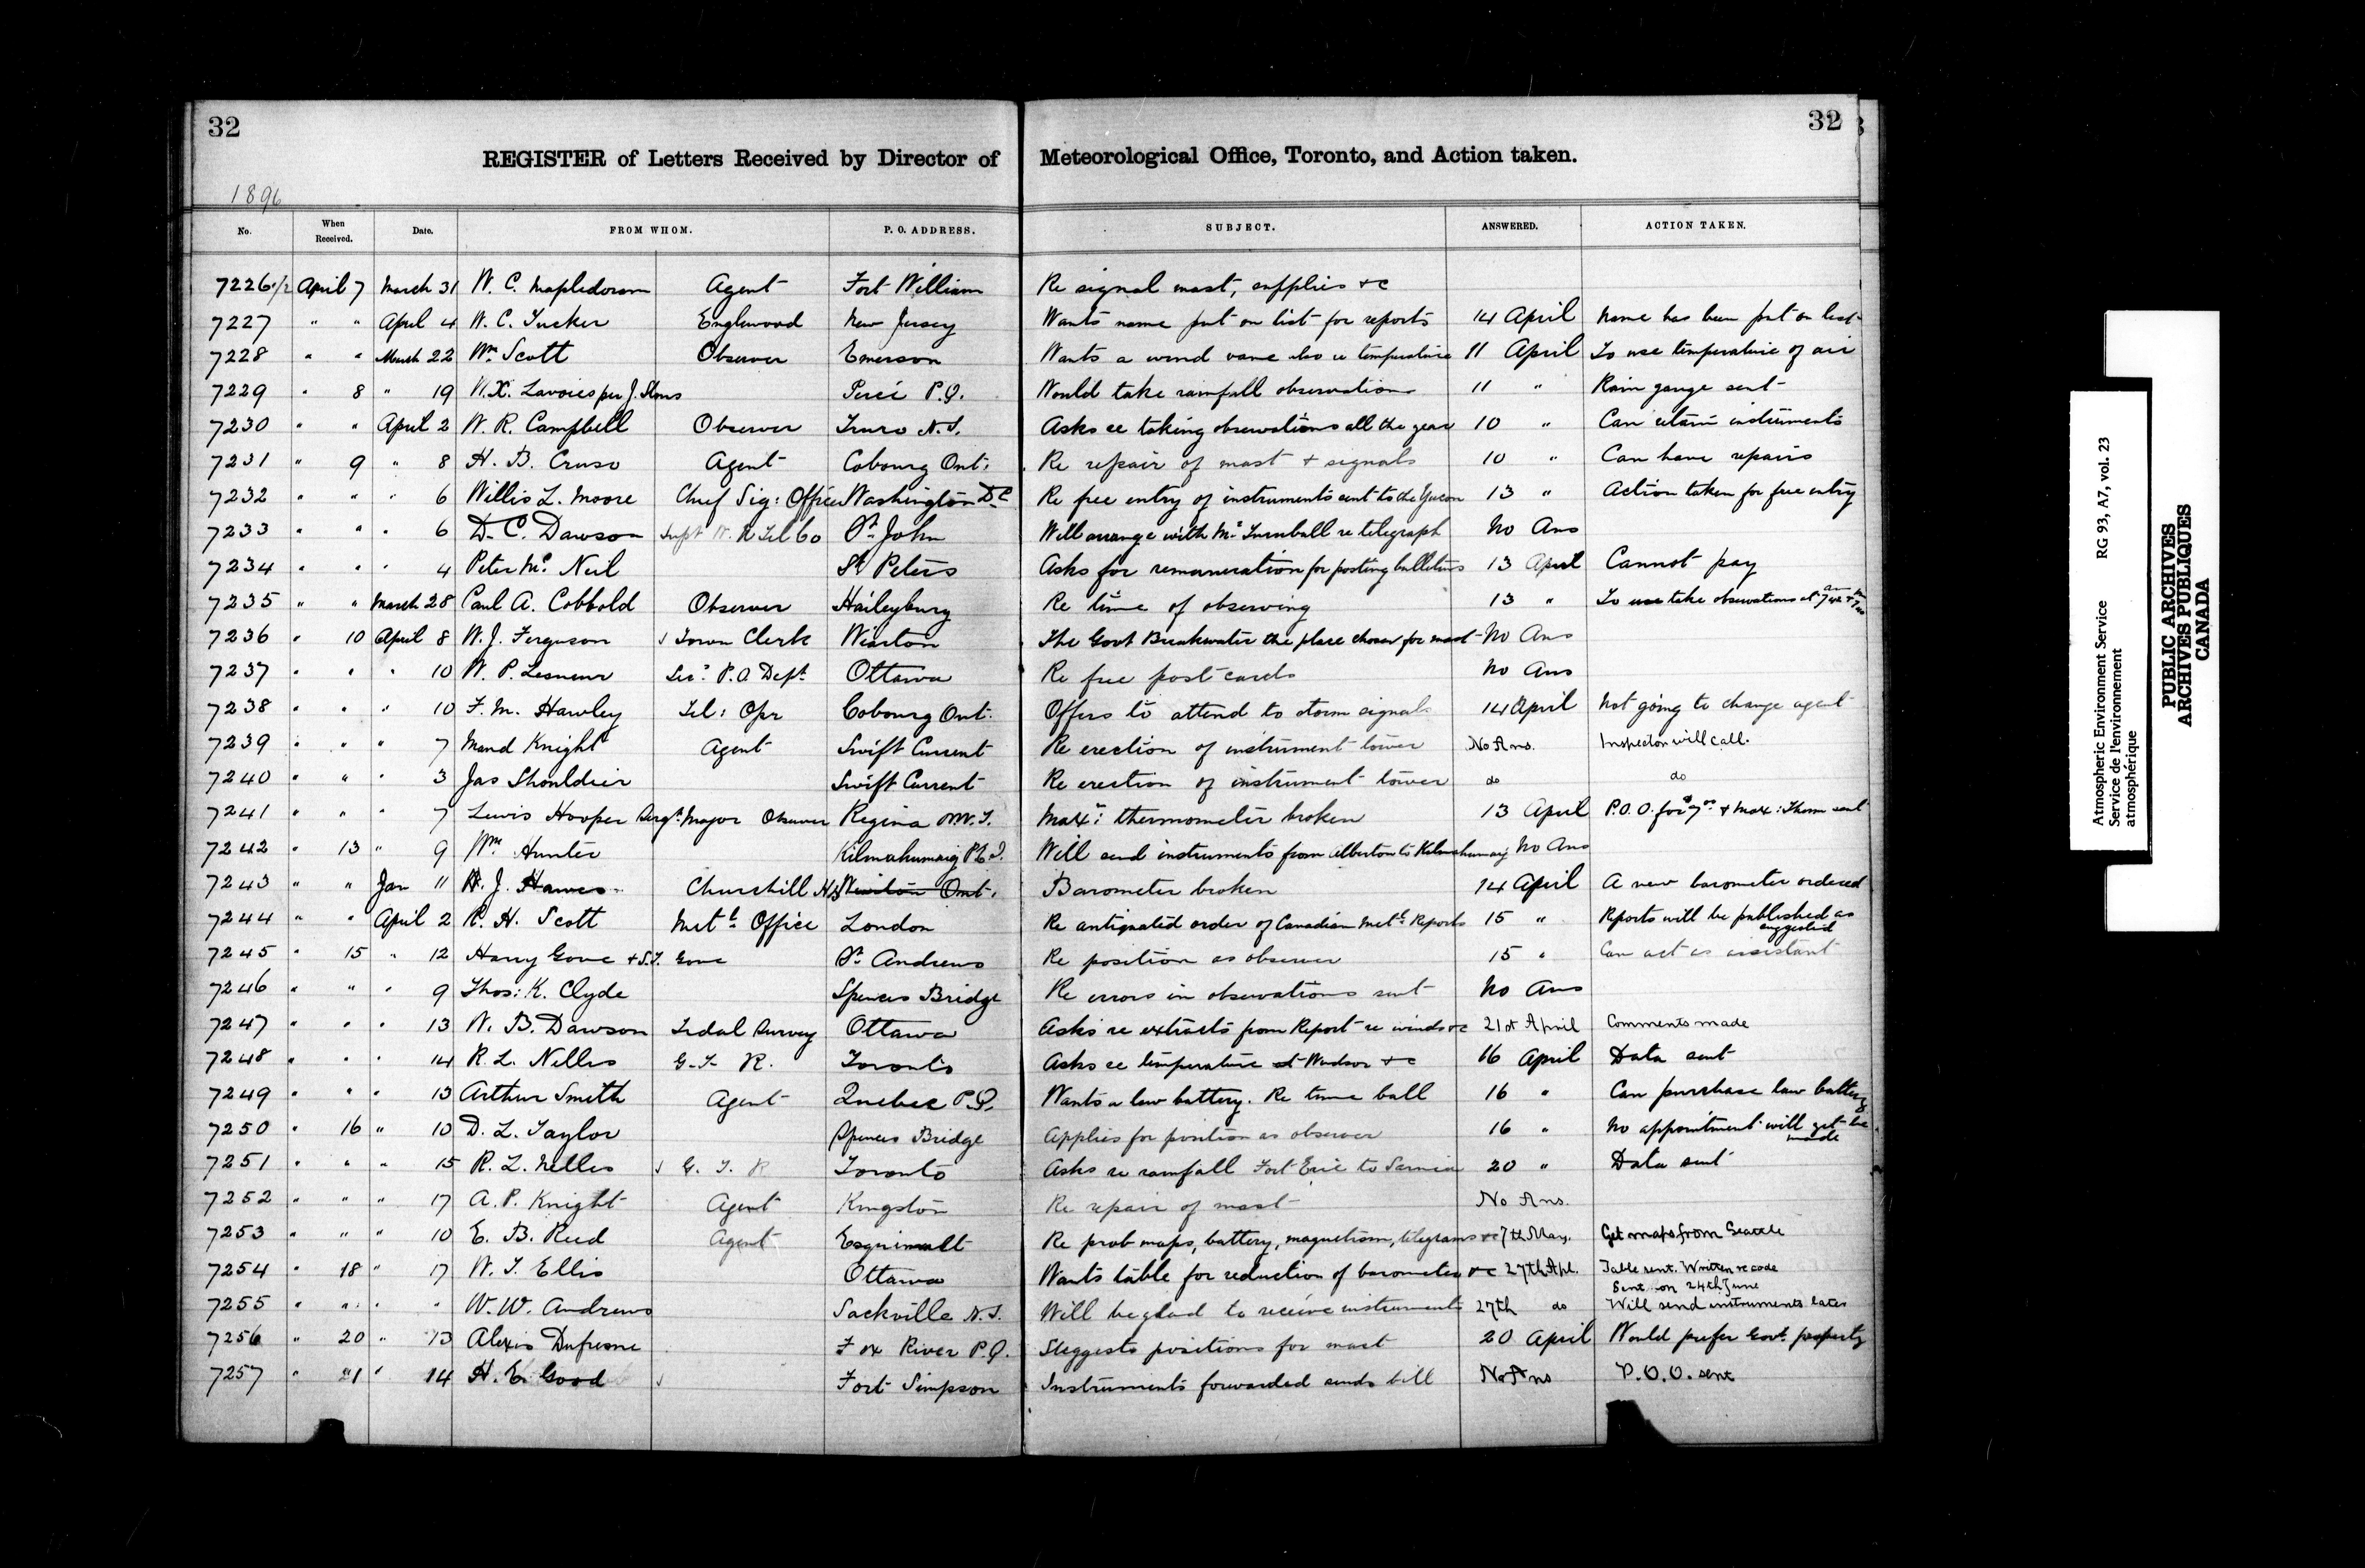 32
32
REGISTER of Letters Received by Director of Meteorological Office, Toronto, and Action taken.
1896
No. When Received. Date. FROM WHOM. P. O. ADDRESS. SUBJECT. ANSWERED. ACTION TAKEN.
7226 1/2 April 7 March 31 W. C. Mapledoram Agent Fort William Re signal mast, supplies &c
7227 " " April 4 W. C. Tucker Englewood New Jersey Wants name put on list for reports 14 April Name has been put on list
7228 " " March 22 Wm Scott Observer Emerson Wants a wind vane also re temperature 11 April To use temperature of air
7229 " 8 " 19 N. X. Lavoies per J. Percé P.Q. Would take rainfall observations 11 " Rain gauge sent
7230 " " April 2 W. R. Campbell Observer Truro N.S. Asks re taking observations all the year 10 " Can retain instruments
7231 " 9 " 8 H. B. Cruso Agent Cobourg Ont. Re repair of mast + signals 10 " Can have repairs
7232 " " " 6 Willis L. Moore Chief Sig: Office Washington D.C. Re free entry of instruments sent to the Yucon 13 " Action taken for free entry
7233 " " " 6 D. C. Dawson Supt W. R Tel Co St John Will arrange with Mr Turnbull re telegraph No Ans
7234 " " " 4 Peter Mc Neil St Peters Asks for remuneration for posting bulletins 13 April Cannot pay
7235 " " March 28 Paul A. Cobbold Observer Haileybury Re time of observing 13 " To use take observations at
7236 " 10 April 8 W. J. Ferguson Town Clerk Wiarton The Govt Breakwater the place chosen for mast No Ans
7237 " " " 10 W. P. Lesueur Sec: P.O. Dept Ottawa Re free post cards No Ans
7238 " " " 10 F. M. Hawley Tel: Opr Cobourg Ont. Offers to attend to storm signals 14 April Not going to change agent
7239 " " " 7 Maud Knight Agent Swift Current Re erection of instrument tower No Ans. Inspector will call.
7240 " " " 3 Jas Shouldice Swift Current Re erection of instrument tower do do
7241 " " " 7 Lewis Hooper Sergt Major Observer Regina N.W.T. Max: thermometer broken 13 April P.O.O. for $7.00 + Max: Therm sent
7242 " 13 " 9 Wm Hunter Kilmahumaig P.E.I. Will send instruments from Alberton to Kilmahumaig No Ans
7243 " " Jan 11 H. J. Hawes Churchill H.B. Wiarton Ont. Barometer broken 14 April A new barometer ordered
7244 " " April 2 R. H. Scott Metl Office London Re antiquated order of Canadian Metl Reports 15 " Reports will be published as suggested
7245 " 15 " 12 Harry Gove + S.T. Gove St Andrews Re position as observer 15 " Can act as assistant
7246 " " " 9 Thos: K. Clyde Spences Bridge Re errors in observations sent No Ans
7247 " " " 13 W. B. Dawson Tidal Survey Ottawa Asks re extracts from Report re winds &c 21st April Comments made
7248 " " " 14 R. L. Nelles G. T. R. Toronto Asks re temperature at Windsor &c 16 April Data sent
7249 " " " 13 Arthur Smith Agent Quebec P.Q. Wants a law battery. Re time ball 16 " Can purchase law battery
7250 " 16 " 10 D. L. Taylor Spences Bridge Applies for position as observer 16 " No appointment will yet be made
7251 " " " 15 R. L. Nelles G. T. R Toronto Asks re rainfall Fort Erie to Sarnia 20 " Data sent
7252 " " " 17 A. P. Knight Agent Kingston Re repair of mast No Ans.
7253 " " " 10 E. B. Reed Agent Esquimalt Re prob maps, battery, magnetism, telegrams &c 7th May. Get maps from Seattle
7254 " 18 " 17 W. T. Ellis Ottawa Wants table for reduction of barometer &c 27th Apl. Table sent. Written re code
Sent on 24th June
7255 " " " " W. W. Andrews Sackville N.S. Will be glad to receive instruments 27th do Will send instruments later
7256 " 20 " 13 Alexis Dufresne Fox River P.Q. Suggests positions for mast 20 April Would prefer Govt. property
7257 " 21 " 14 H. E. Good Fort Simpson Instruments forwarded sends bill No Ans P.O.O. sent
Atmospheric Environment Service RG 93, A7, vol. 23
Service de l'environnement
atmosphérique
PUBLIC ARCHIVES
ARCHIVES PUBLIQUES
CANADA